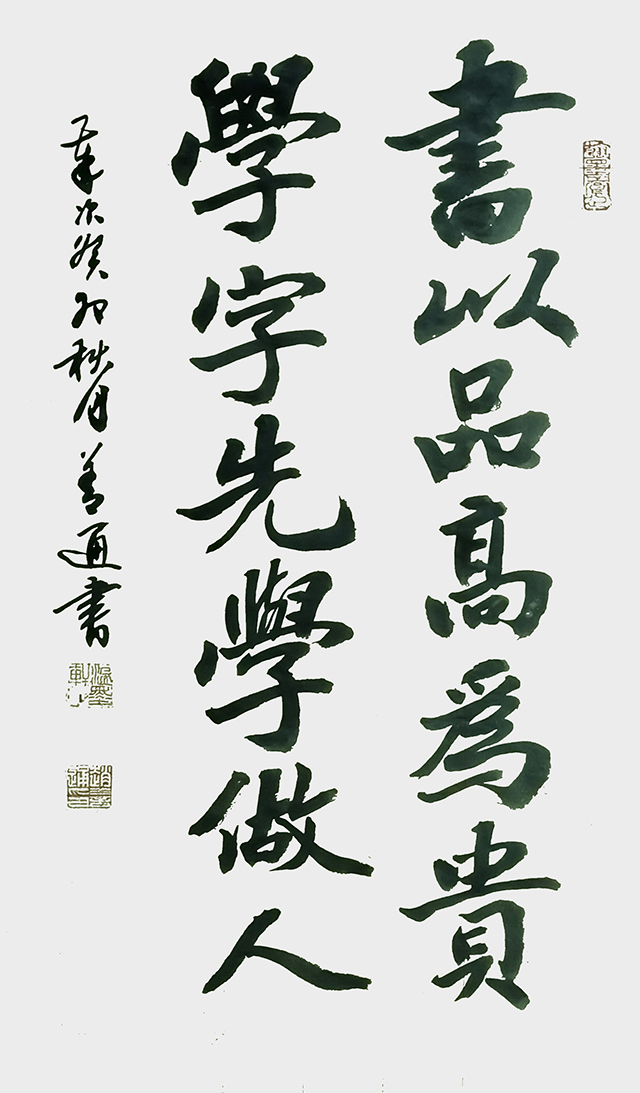 書以品高為貴
學字先學做人
歲次癸卯秋月善通書